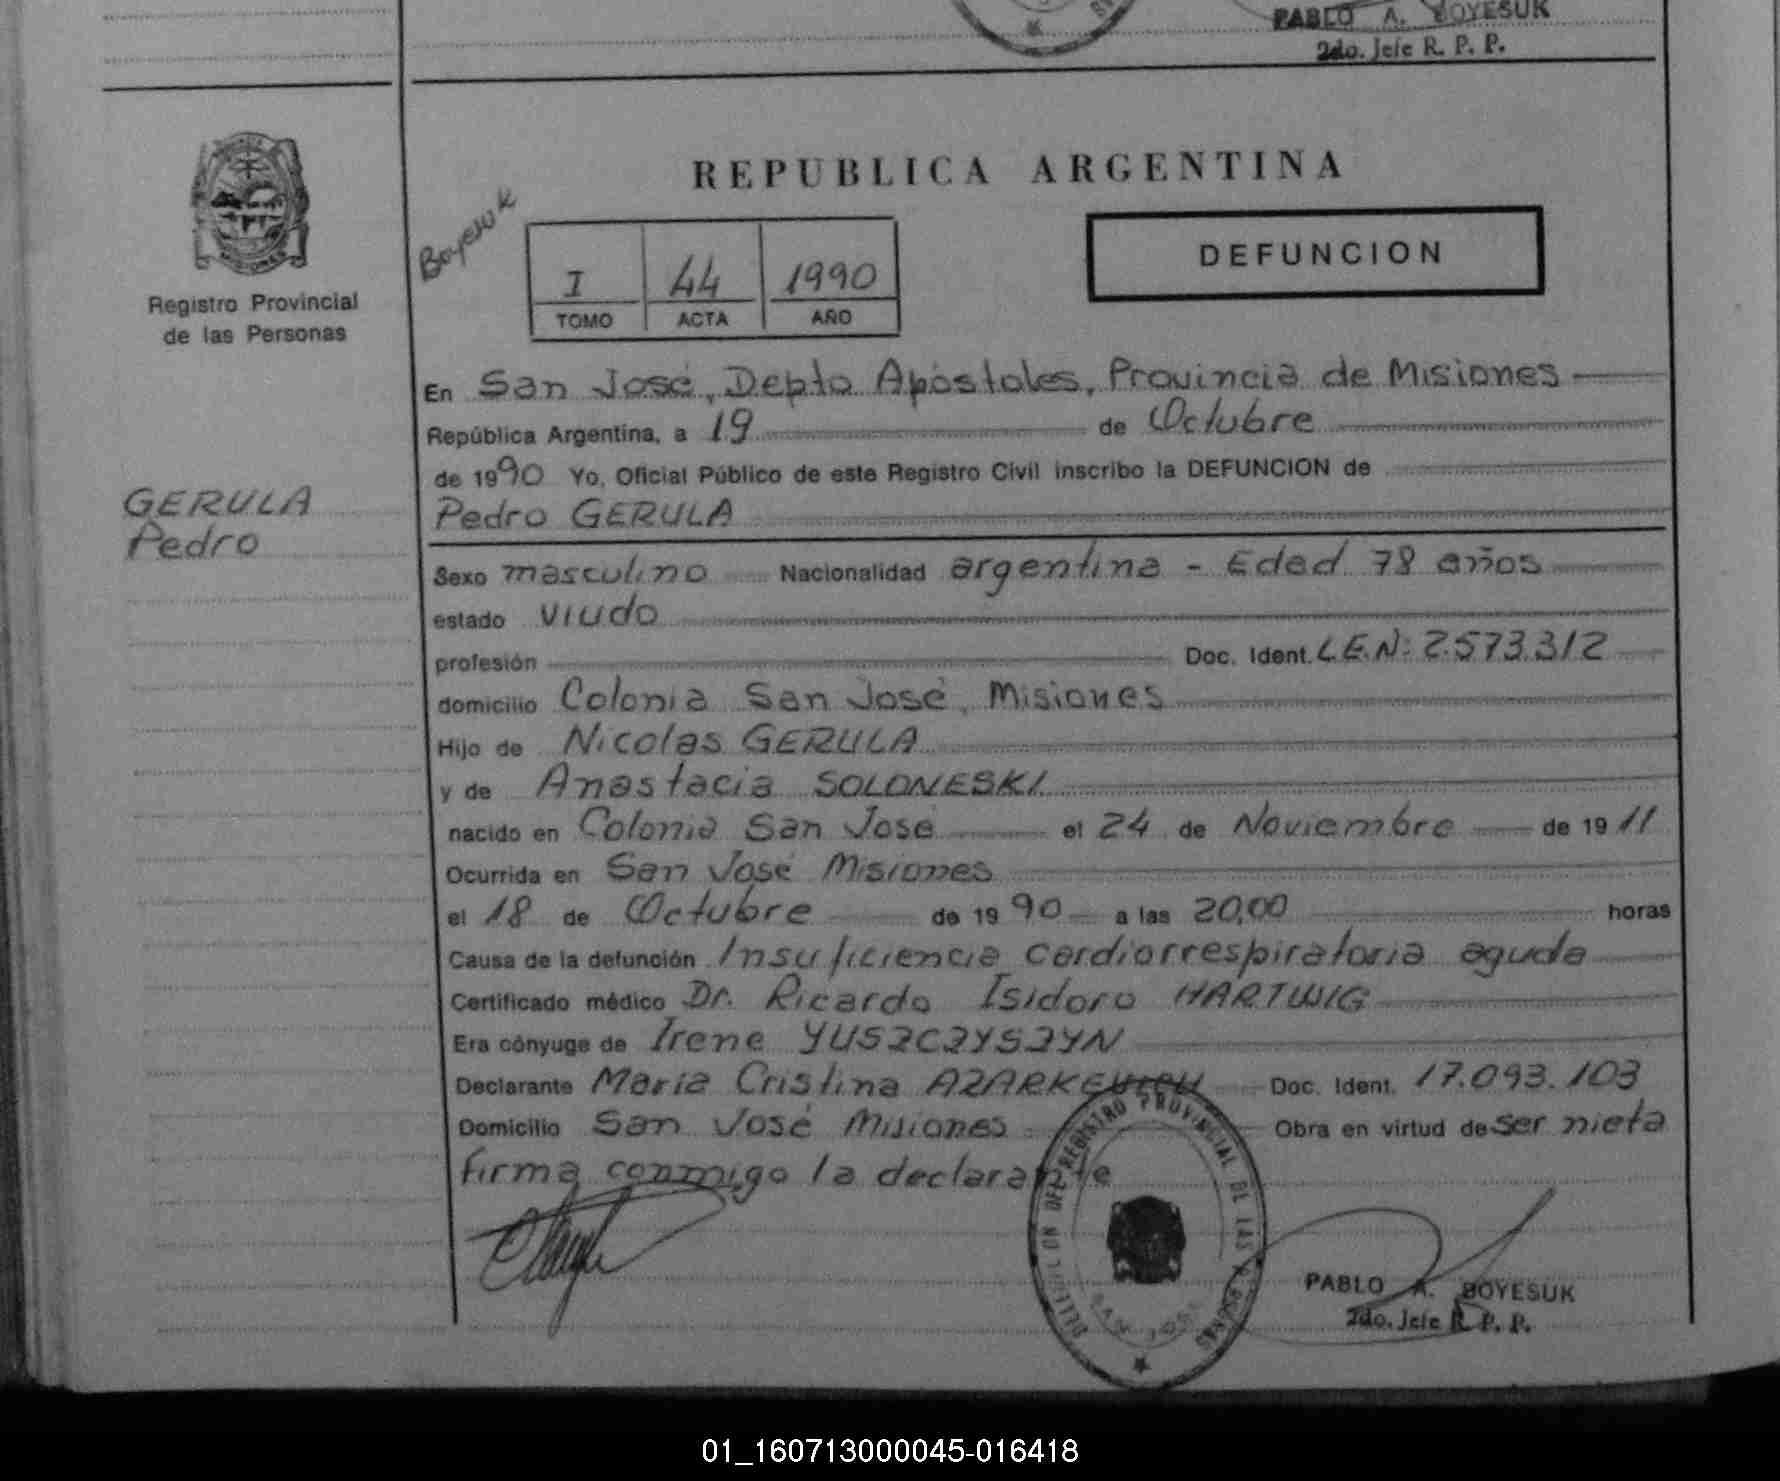 PABLO A. BOYESUK
2do. Jefe R. P. P.
REPUBLICA ARGENTINA
Boyesuk
I 44 1990
TOMO ACTA AÑO
DEFUNCION
Registro Provincial
de las Personas
GERULA
Pedro
En San José, Depto Apóstoles, Provincia de Misiones
República Argentina, a 19 de Octubre
de 1990 Yo, Oficial Público de este Registro Civil inscribo la DEFUNCION de
Pedro GERULA
Sexo masculino Nacionalidad argentina - Edad 78 años
estado viudo
profesión Doc. Ident. L.E.N: 2.573.312
domicilio Colonia San José, Misiones
Hijo de Nicolas GERULA
y de Anastacia SOLONESKI
nacido en Colonia San José el 24 de Noviembre de 1911
Ocurrida en San José Misiones
el 18 de Octubre de 1990 a las 20,00 horas
Causa de la defunción Insuficiencia cardiorrespiratoria aguda
Certificado médico Dr. Ricardo Isidoro HARTWIG
Era cónyuge de Irene YUSZCZYSZYN
Declarante María Cristina Doc. Ident. 17.093.103
Domicilio San José Misiones Obra en virtud de ser nieta
firma conmigo la declarante
DELEGACION DEL REGISTRO PROVINCIAL DE LAS PERSONAS
SAN JOSE
PABLO A. BOYESUK
2do. Jefe R. P. P.
01_160713000045-016418